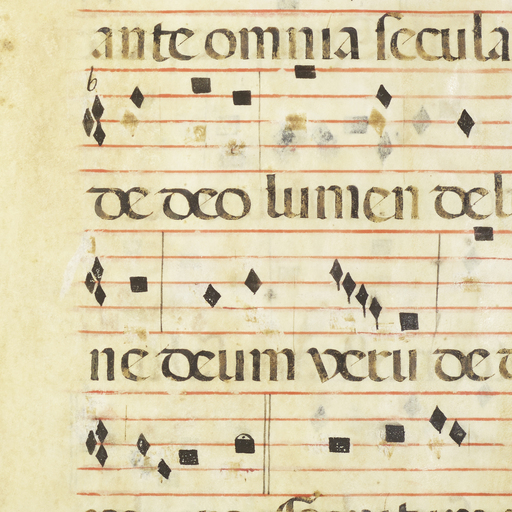 ante omnia secula
b
de deo lumen de
ne deum veru de